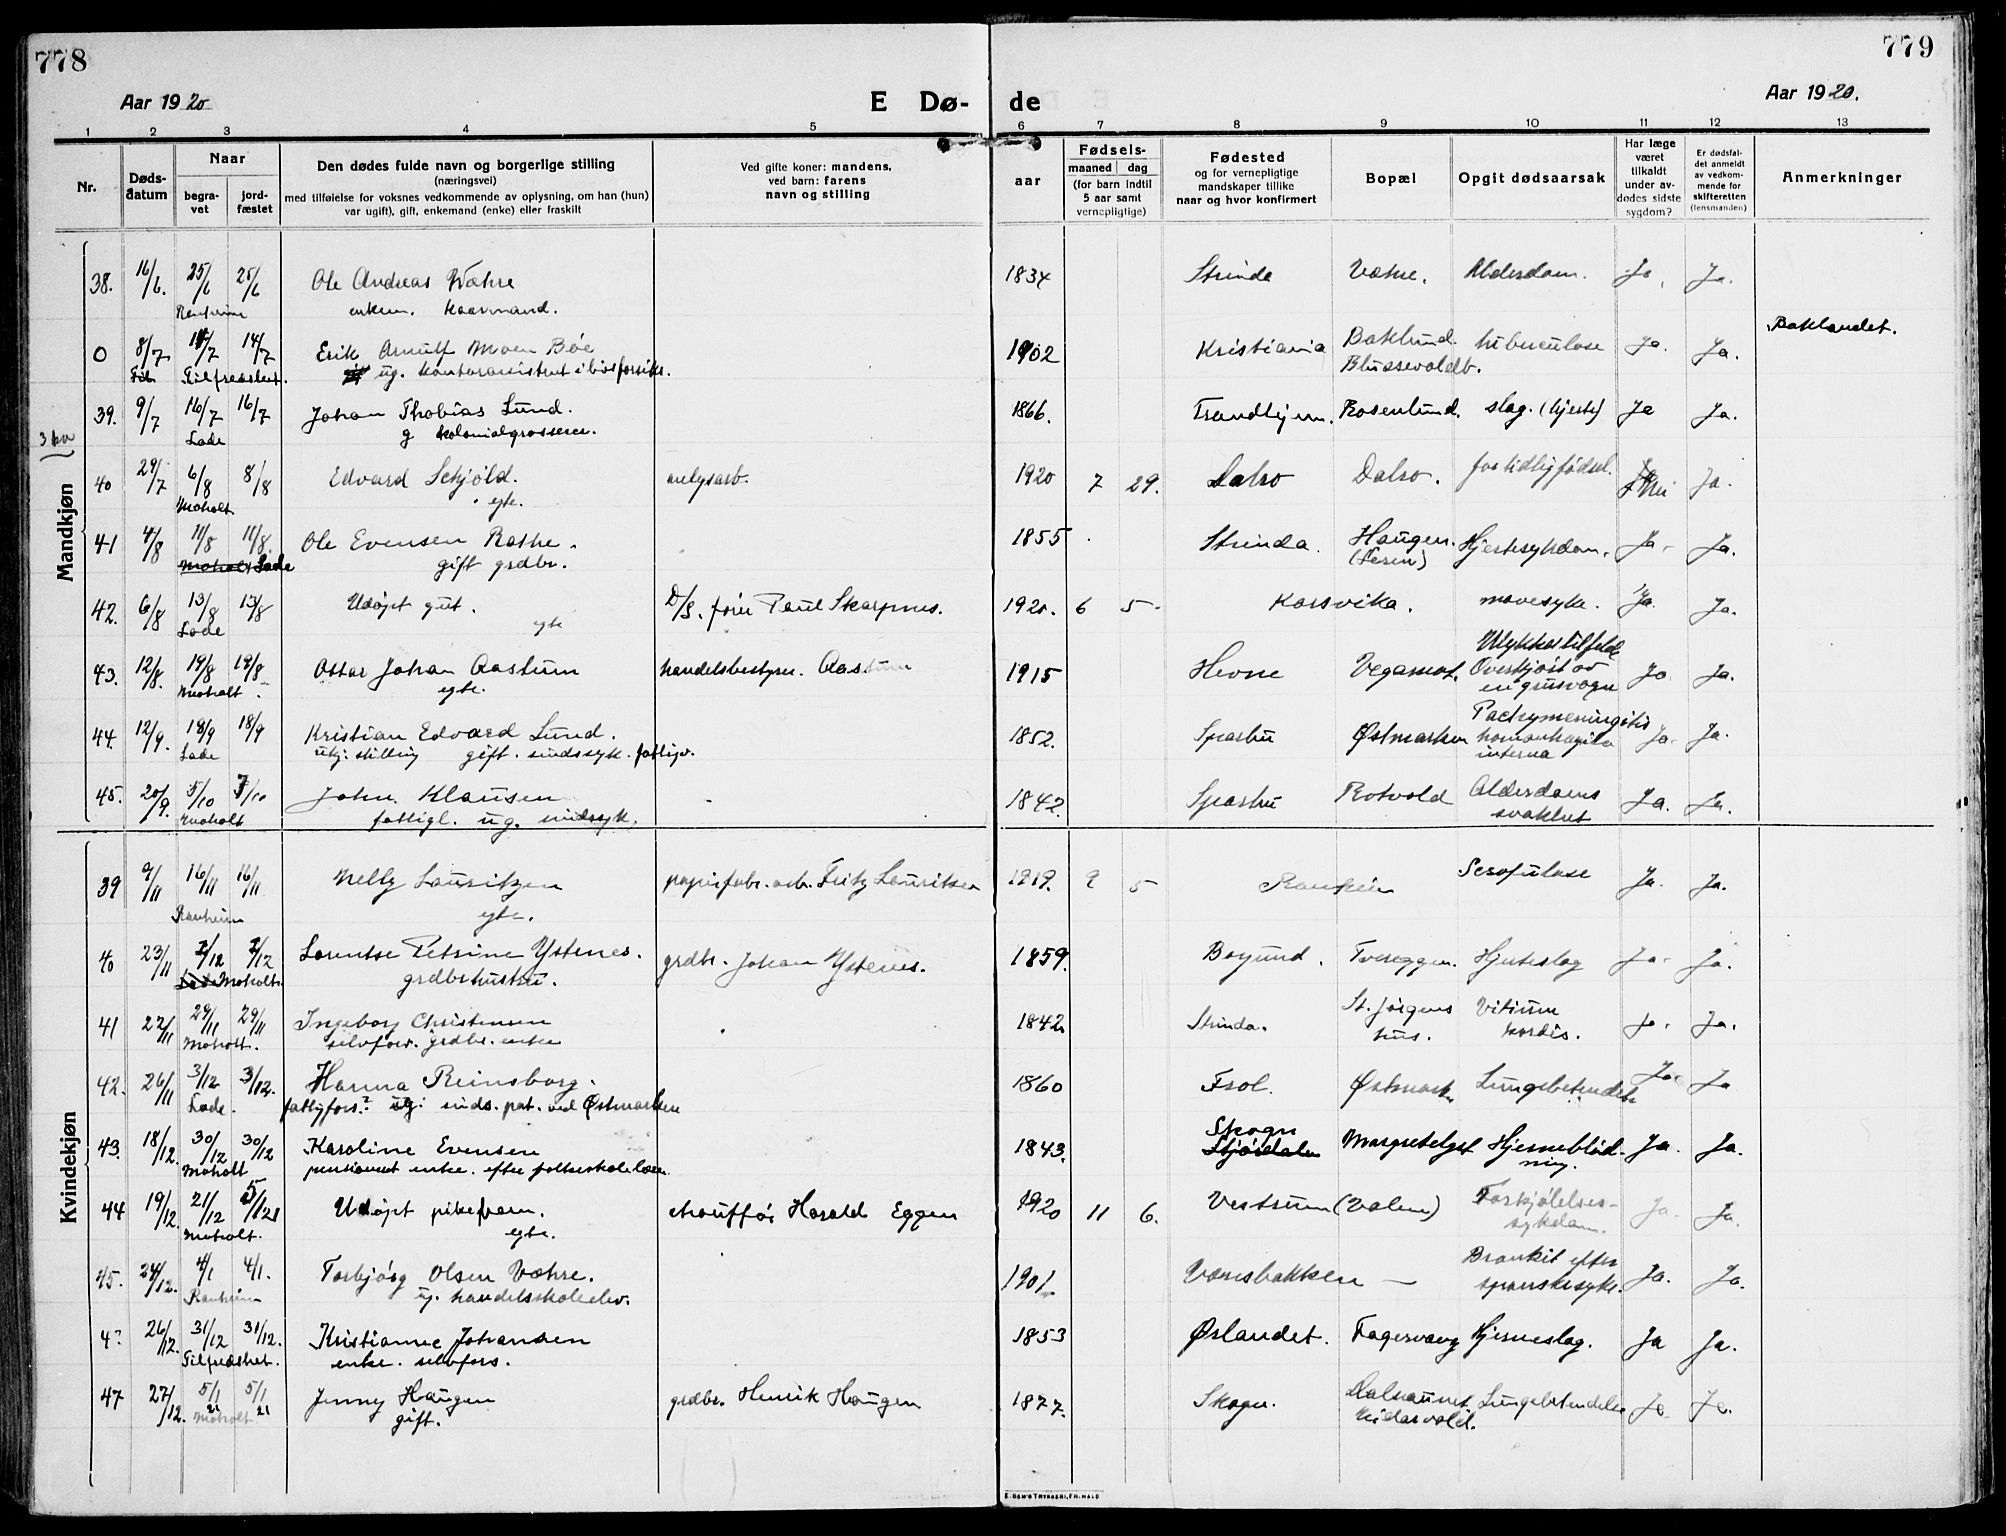 778
779
Aar 1920
E Dø-
de
Aar 1920.
1 2 3 4 5 6 7 8 9 10 11 12 13
Nr.
Døds-
datum
Naar
begra-
vet
jord-
fæstet
Den dødes fulde navn og borgerlige stilling
(næringsvei)
med tilføielse for voksnes vedkommende av oplysning, om han (hun)
var ugift), gift, enkemand (enke) eller fraskilt
Ved gifte koner: mandens,
ved barn: farens
navn og stilling
aar
Fødsels-
maaned dag
(for barn indtil
5 aar samt
vernepligtige)
Fødested
og for vernepligtige
mandskaper tillike
naar og hvor konfirmert
Bopæl
Opgit dødsaarsak
Har læge
været
tilkaldt
under av-
dødes sidste
sygdom?
Er dødsfal-
det anmeldt
av vedkom-
mende for
skifteretten
(lensmanden)
Anmerkninger
Mandkjøn
38. 16/6. 25/6 25/6 Ole Andreas Væhre 1834 Strinda Væhre. Alderdom. Ja. Ja.
Ranheim enkem. kaarmand.
Baklandet.
0 8/7 14/7 14/7 Erik Arnulf Moen Bøe 1902 Kristiania Baklund. tuberculose Ja. Ja.
Tilfredshet. ug. kontorassistent i livsforsikr. Blussevoldb.
39. 9/7 16/7 16/7 Johan Thobias Lund. 1866. Trondhjem. Rosenlund. slag. (hjerte) Ja Ja.
Lade g kolonialgrosserer.
40 29/7 6/8 8/8 Edvard Schjøld. anlegsarb. 1920 7 29. Dalso Dalso. for tidlig fødsel. Nei Ja.
Moholt egte.
41 4/8 11/8 11/8. Ole Evensen Rathe. 1855 Strinda. Haugen. Hjertesykdom. Ja. Ja.
Moholt Lade gift grdbr. (Leren)
42. 6/8 13/8 13/8 Udøpt gut. D/S. fører Paul Skarpnes. 1920. 6 5. Korsvika. mavesyke. Ja. Ja.
Lade egte
43. 12/8. 19/8 19/8 Ottar Johan Aastum handelsbestyrer. Aastum 1915 Hevne Vegamot. Ulykkestilfelde Ja Ja.
Moholt. egte. Overkjørt av
en grusvogn
44. 12/9. 18/9 18/9 Kristian Edvard Lund. 1852. Sparbu Østmarken Pachymeningitis Ja. Ja.
Lade ukj. stilling gift. sindssyk. fattigv. interna
45. 20/9. 5/10 7/10 John Klausen 1842. Sparbu Rotvold Alderdoms Ja. Ja.
Moholt fattigl. ug. sindssyk. svakhet
Kvindekjøn
39 9/11 16/11 16/11 Nelly Lauritzen papirfabr. arb. Fritz Lauritsen 1919. 9 5 Ranheim Scrofulose Ja. Ja.
Ranheim egte.
40 23/11 2/12 2/12 Lorentse Petrine Ystenes. grdbr. Johan Ystenes. 1859. Borgund. Tveseggen. Hjerteslag Ja. Ja.
Lade Moholt. grdbrhustru.
41 22/11 29/11 29/11 Ingeborg Christensen 1842 Strinda. St. Jørgens Vitium Ja. Ja.
Moholt. selvfors. grdbr. enke hus. kordis.
42. 26/11 3/12 3/12. Hanna Reinsborg. 1860 Frol. Østmark. Lungebetendelse Ja. Ja
Lade. fattigfors.? ug. sinds. pat. ved Østmarken
43. 18/12. 30/12 30/12 Karoline Evensen 1843. Skogn Margretelyst Hjerneblød- Ja. Ja.
Moholt pensionert enke. efter folkeskolelærer Stjørdalen ning.
44 19/12. 21/12 5/1 21 Udøpt pikebarn. chauffør Harald Eggen 1920 11 6. Vestrum (Valen) Forkjølelses- Ja. Ja.
Moholt. egte. sykdom.
45. 24/12. 4/1 4/1. Torbjørg Olsen Væhre. 1901. Væresbakken — Bronkit efter Ja. Ja.
Ranheim ug. handelsskoleelev. spanskesyke.
4? 26/12. 31/12 31/12. Kristianne Johansen 1853 Ørlandet. Fagervang Hjerneslag. Ja Ja.
Tilfredshet. enke. selvfors.
47 27/12. 5/1 21 5/1 21 Jenny Haugen grdbr. Henrik Haugen 1877. Skogn. Dalsaunet Lungebetendelse Ja Ja.
Moholt gift. Nidarvold.
E. DEM'S TRYKKERI, FR. HALD